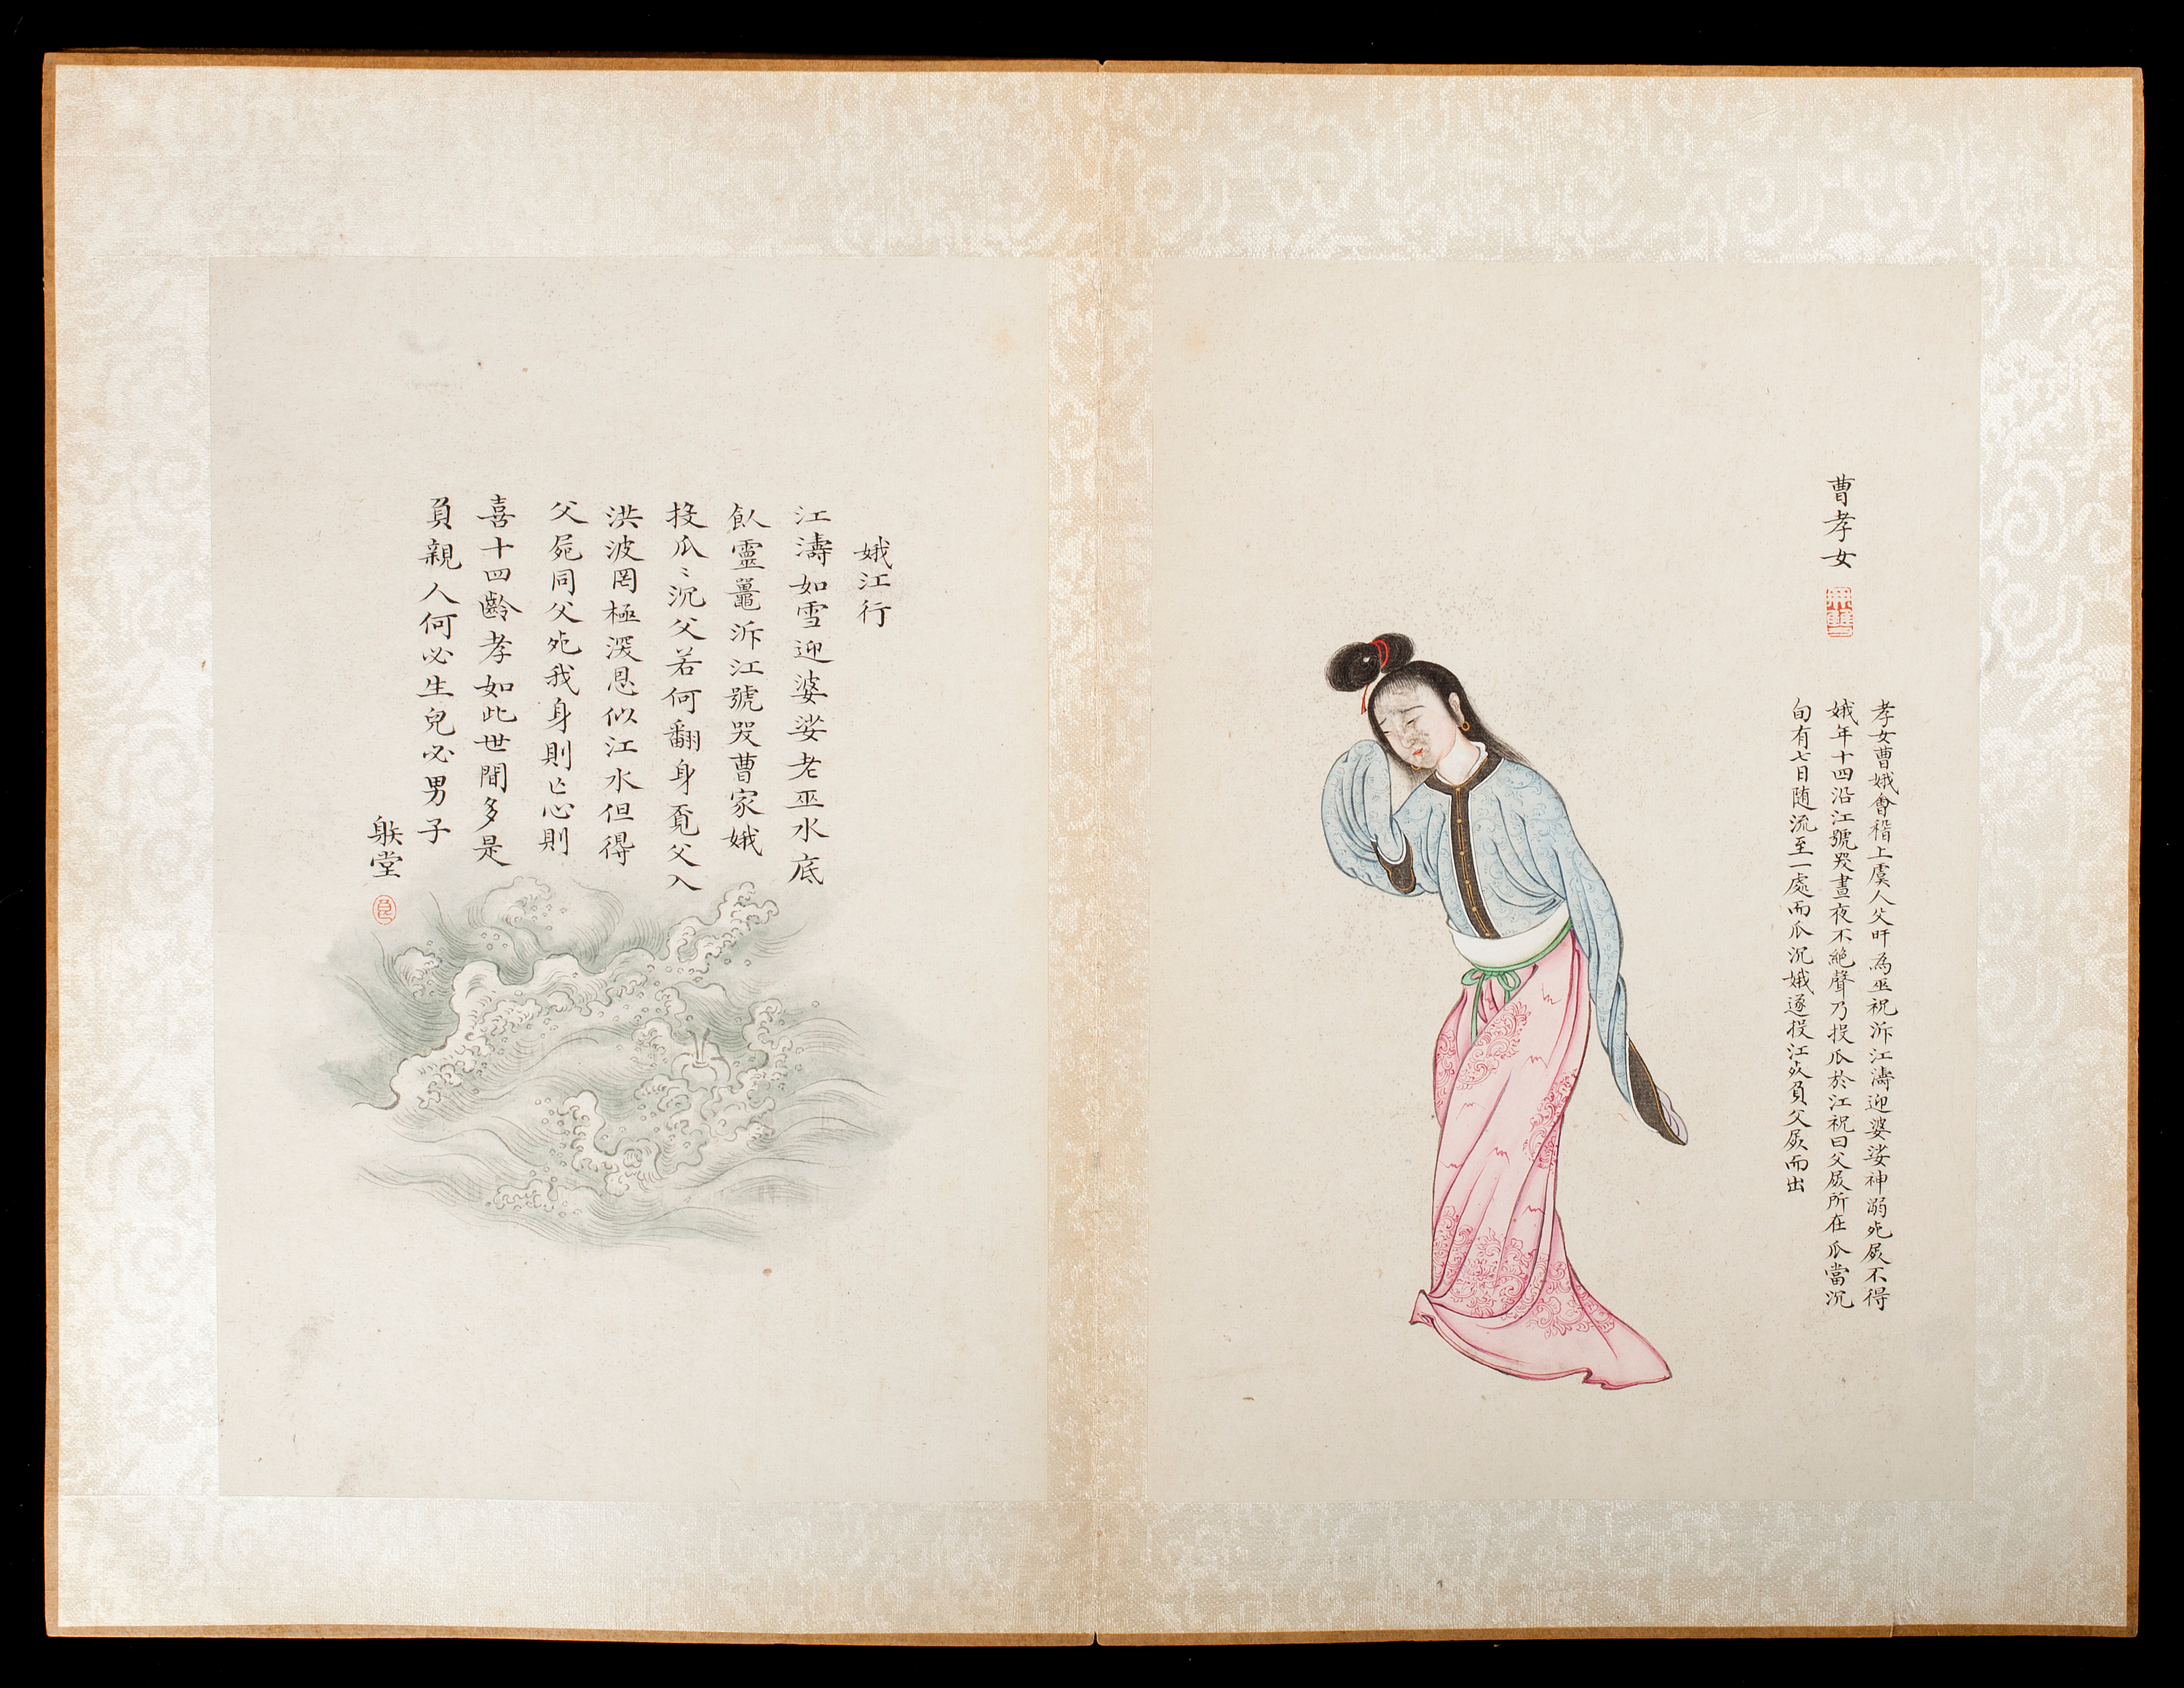 曹孝女
無雙
孝女曹娥會稽上虞人父盱為巫祝泝江濤迎婆娑神溺死屍不得
娥年十四沿江號哭晝夜不絶聲乃投瓜於江祝曰父屍所在瓜當沉
旬有七日随流至一處而瓜沉娥遂投江死負父屍而出
娥江行
江濤如雪迎婆娑老巫水底
飲靈鼉泝江號哭曹家娥
投瓜〻沉父若何翻身覔父入
洪波罔極深恩似江水但得
父屍同父死我身則亡心則
喜十四齡孝如此世間多是
負親人何必生兒必男子
躲堂